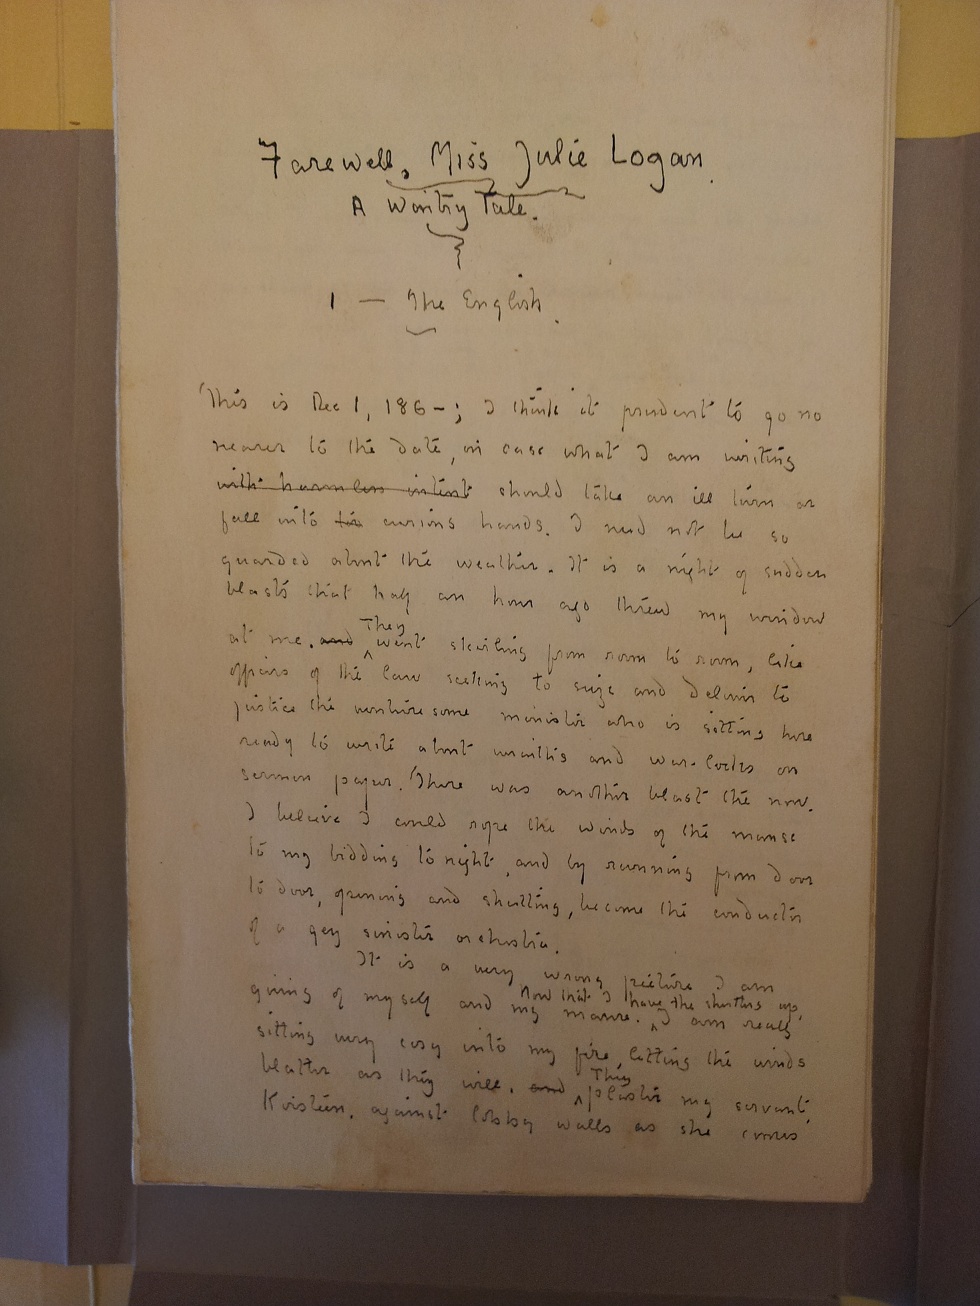 Farewell, Miss Julie Logan.
A Wintry Tale.
1 — The English.
This is Dec 1, 186-; I think it prudent to go no
nearer to the date, in case what I am writing
with harmless intent should take an ill turn or
fall into curious hands. I need not be so
guarded about the weather. It is a night of sudden
blasts that half an hour ago threw my window
at me. and They went skirling from room to room, like
officers of the law seeking to seize and deliver to
justice the venturesome minister who is sitting here
ready to write about wraiths and war-locks on
sermon paper. There was another blast the now.
I believe I could rope the winds of the manse
to my bidding to-night, and by running from door
to door, opening and shutting, become the conductor
of a gey sinister orchestra.
It is a very wrong picture I am
giving of myself and my manse. Now that I have the shutters up, I am really
sitting very cosy into my fire, letting the winds
blatter as they will. and They plaster my servant,
Kristeen, against lobby walls as she comes